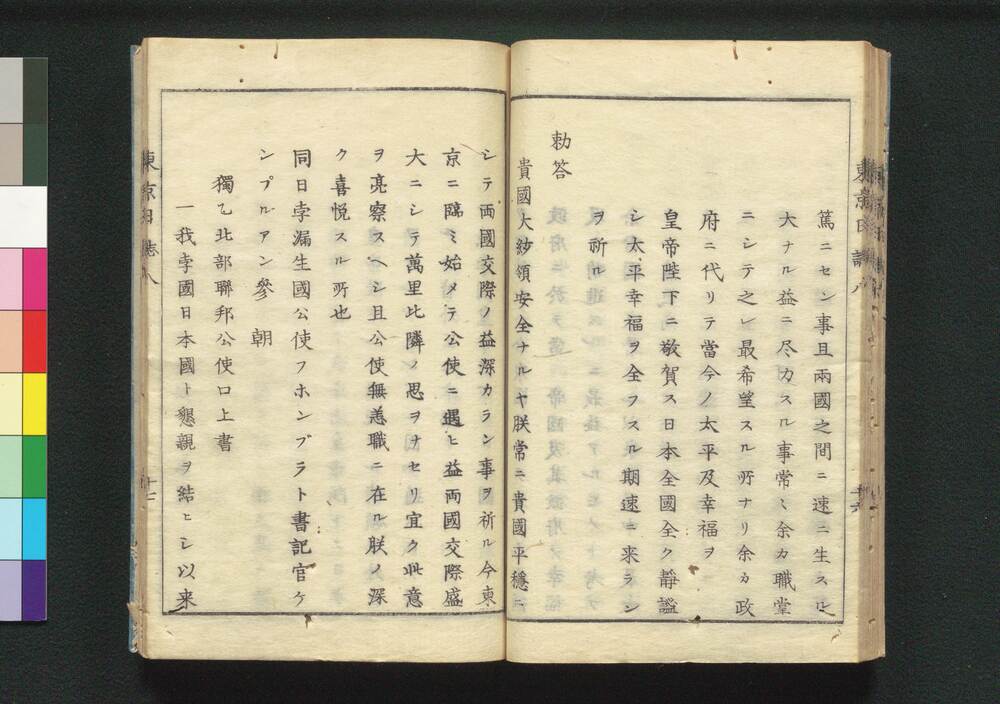 篤ニセン事且兩國之間ニ速ニ生スル
大ナル益ニ尽力スル事常ニ余カ職掌
ニシテ之レ最希望スル所ナリ余カ政
府ニ代リテ當今ノ太平及幸福ヲ
皇帝陛下ニ敬賀ス日本全國全ク靜謐
シ太平幸福ヲ全フスル期速ニ来ラン
ヲ祈ル
勅答
貴國大紗領安全ナルヤ朕常ニ貴國平穩ニ
シテ両國交際ノ益深カラン事ヲ祈ル今東
京ニ臨ミ始メテ公使ニ遇ヒ益両國交際盛
大ニシテ萬里比隣ノ思ヲナセリ宜ク此意
ヲ亮察スヘシ且公使無恙職ニ在ル朕ノ深
ク喜悦スル所也
同日孛漏生國公使フホンブラト書記官ケ
ンプルアン參朝
獨乙北部聯邦公使口上書
一我孛國日本國ト懇親ヲ結ヒシ以来
東京日誌八